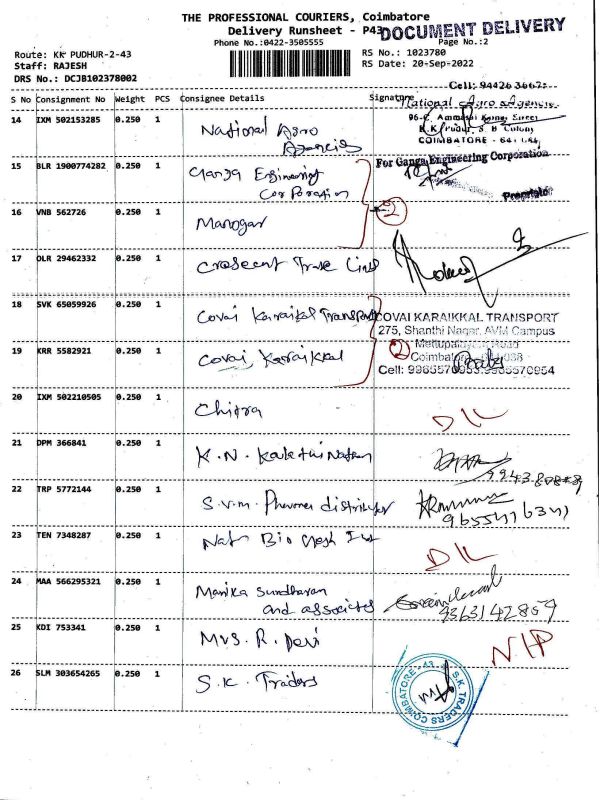 THE PROFESSIONAL COURIERS, Coimbatore
Delivery Runsheet - P43
DOCUMENT DELIVERY
Phone No.:0422-3505555
Page No.:2
Route: KK PUDHUR-2-43
RS No.: 1023780
Staff: RAJESH
RS Date: 20-Sep-2022
DRS No.: DCJB102378002
S No Consignment No Weight PCS Consignee Details Signature
14 IXM 502153285 0.250 1 National Agro Agencies
National Agro Agencies
COIMBATORE - 641
15 BLR 1900774282 0.250 1 Ganga Engineering Corporation
For Ganga Engineering Corporation
16 VNB 562726 0.250 1 Manogar
2
17 OLR 29462332 0.250 1 Crescent Trade Lines
18 SVK 65059926 0.250 1 Covai Karaikal Transport
COVAI KARAIKKAL TRANSPORT
275, Shanthi Nagar, AVM Campus
19 KRR 5582921 0.250 1 Covai Karaikkal
2
Mettupalayam Road
Cell: 9965570953,9965570954
20 IXM 502210505 0.250 1 Chitra
D/L
21 DPM 366841 0.250 1 K.N.
22 TRP 5772144 0.250 1 S.V.M. Pharma distributor
23 TEN 7348287 0.250 1
D/L
24 MAA 566295321 0.250 1 Manika Sundharan
and associates
25 KDI 753341 0.250 1 Mrs. R. Devi
26 SLM 303654265 0.250 1 S.K. Traders
S.K. TRADERS COIMBATORE - 43